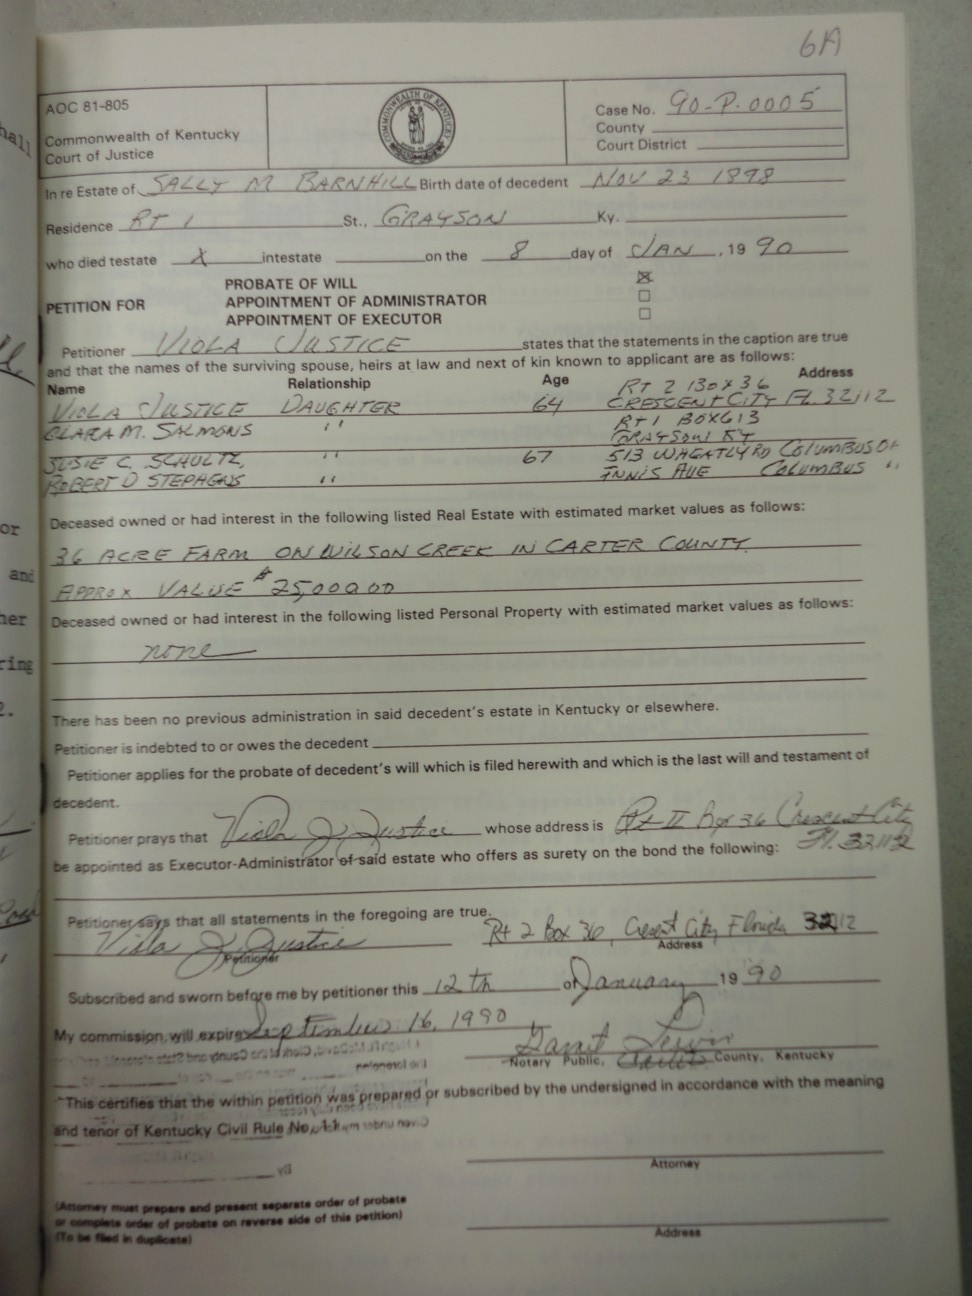 6A
AOC 81-805
Commonwealth of Kentucky
Court of Justice
COMMONWEALTH OF KENTUCKY
Case No. 90-P-0005
County
Court District
hall
In re Estate of SALLY M BARNHILL Birth date of decedent NOV 23 1898
Residence RT 1 St., GRAYSON Ky.
who died testate X intestate on the 8 day of JAN, 1990
PETITION FOR
PROBATE OF WILL ☒
APPOINTMENT OF ADMINISTRATOR ☐
APPOINTMENT OF EXECUTOR ☐
Petitioner VIOLA JUSTICE states that the statements in the caption are true
and that the names of the surviving spouse, heirs at law and next of kin known to applicant are as follows:
Name Relationship Age Address
RT 2 BOX 36
VIOLA JUSTICE DAUGHTER 64 CRESCENT CITY FL 32112
RT 1 BOX 613
CLARA M. SALMONS " GRAYSON KY
SUSIE C. SCHULTZ, " 67 513 WHEATLY RD COLUMBUS OH
ROBERT D STEPHENS " INNIS AVE COLUMBUS "
or
Deceased owned or had interest in the following listed Real Estate with estimated market values as follows:
36 ACRE FARM ON WILSON CREEK IN CARTER COUNTY.
and
APPROX VALUE $25,000.00
her
Deceased owned or had interest in the following listed Personal Property with estimated market values as follows:
none
ring
2.
There has been no previous administration in said decedent's estate in Kentucky or elsewhere.
Petitioner is indebted to or owes the decedent
Petitioner applies for the probate of decedent's will which is filed herewith and which is the last will and testament of
decedent.
Petitioner prays that Viola J. Justice whose address is Rt II Box 36 Crescent City
Fl. 32112
be appointed as Executor-Administrator of said estate who offers as surety on the bond the following:
Petitioner says that all statements in the foregoing are true.
Viola J. Justice Rt 2 Box 36, Cresent City, Florida 32112
Petitioner Address
Subscribed and sworn before me by petitioner this 12th of January 1990
My commission will expire September 16, 1990
Notary Public, County, Kentucky
This certifies that the within petition was prepared or subscribed by the undersigned in accordance with the meaning
and tenor of Kentucky Civil Rule No. 11
Attorney
(Attorney must prepare and present separate order of probate
or complete order of probate on reverse side of this petition)
(To be filed in duplicate)
Address